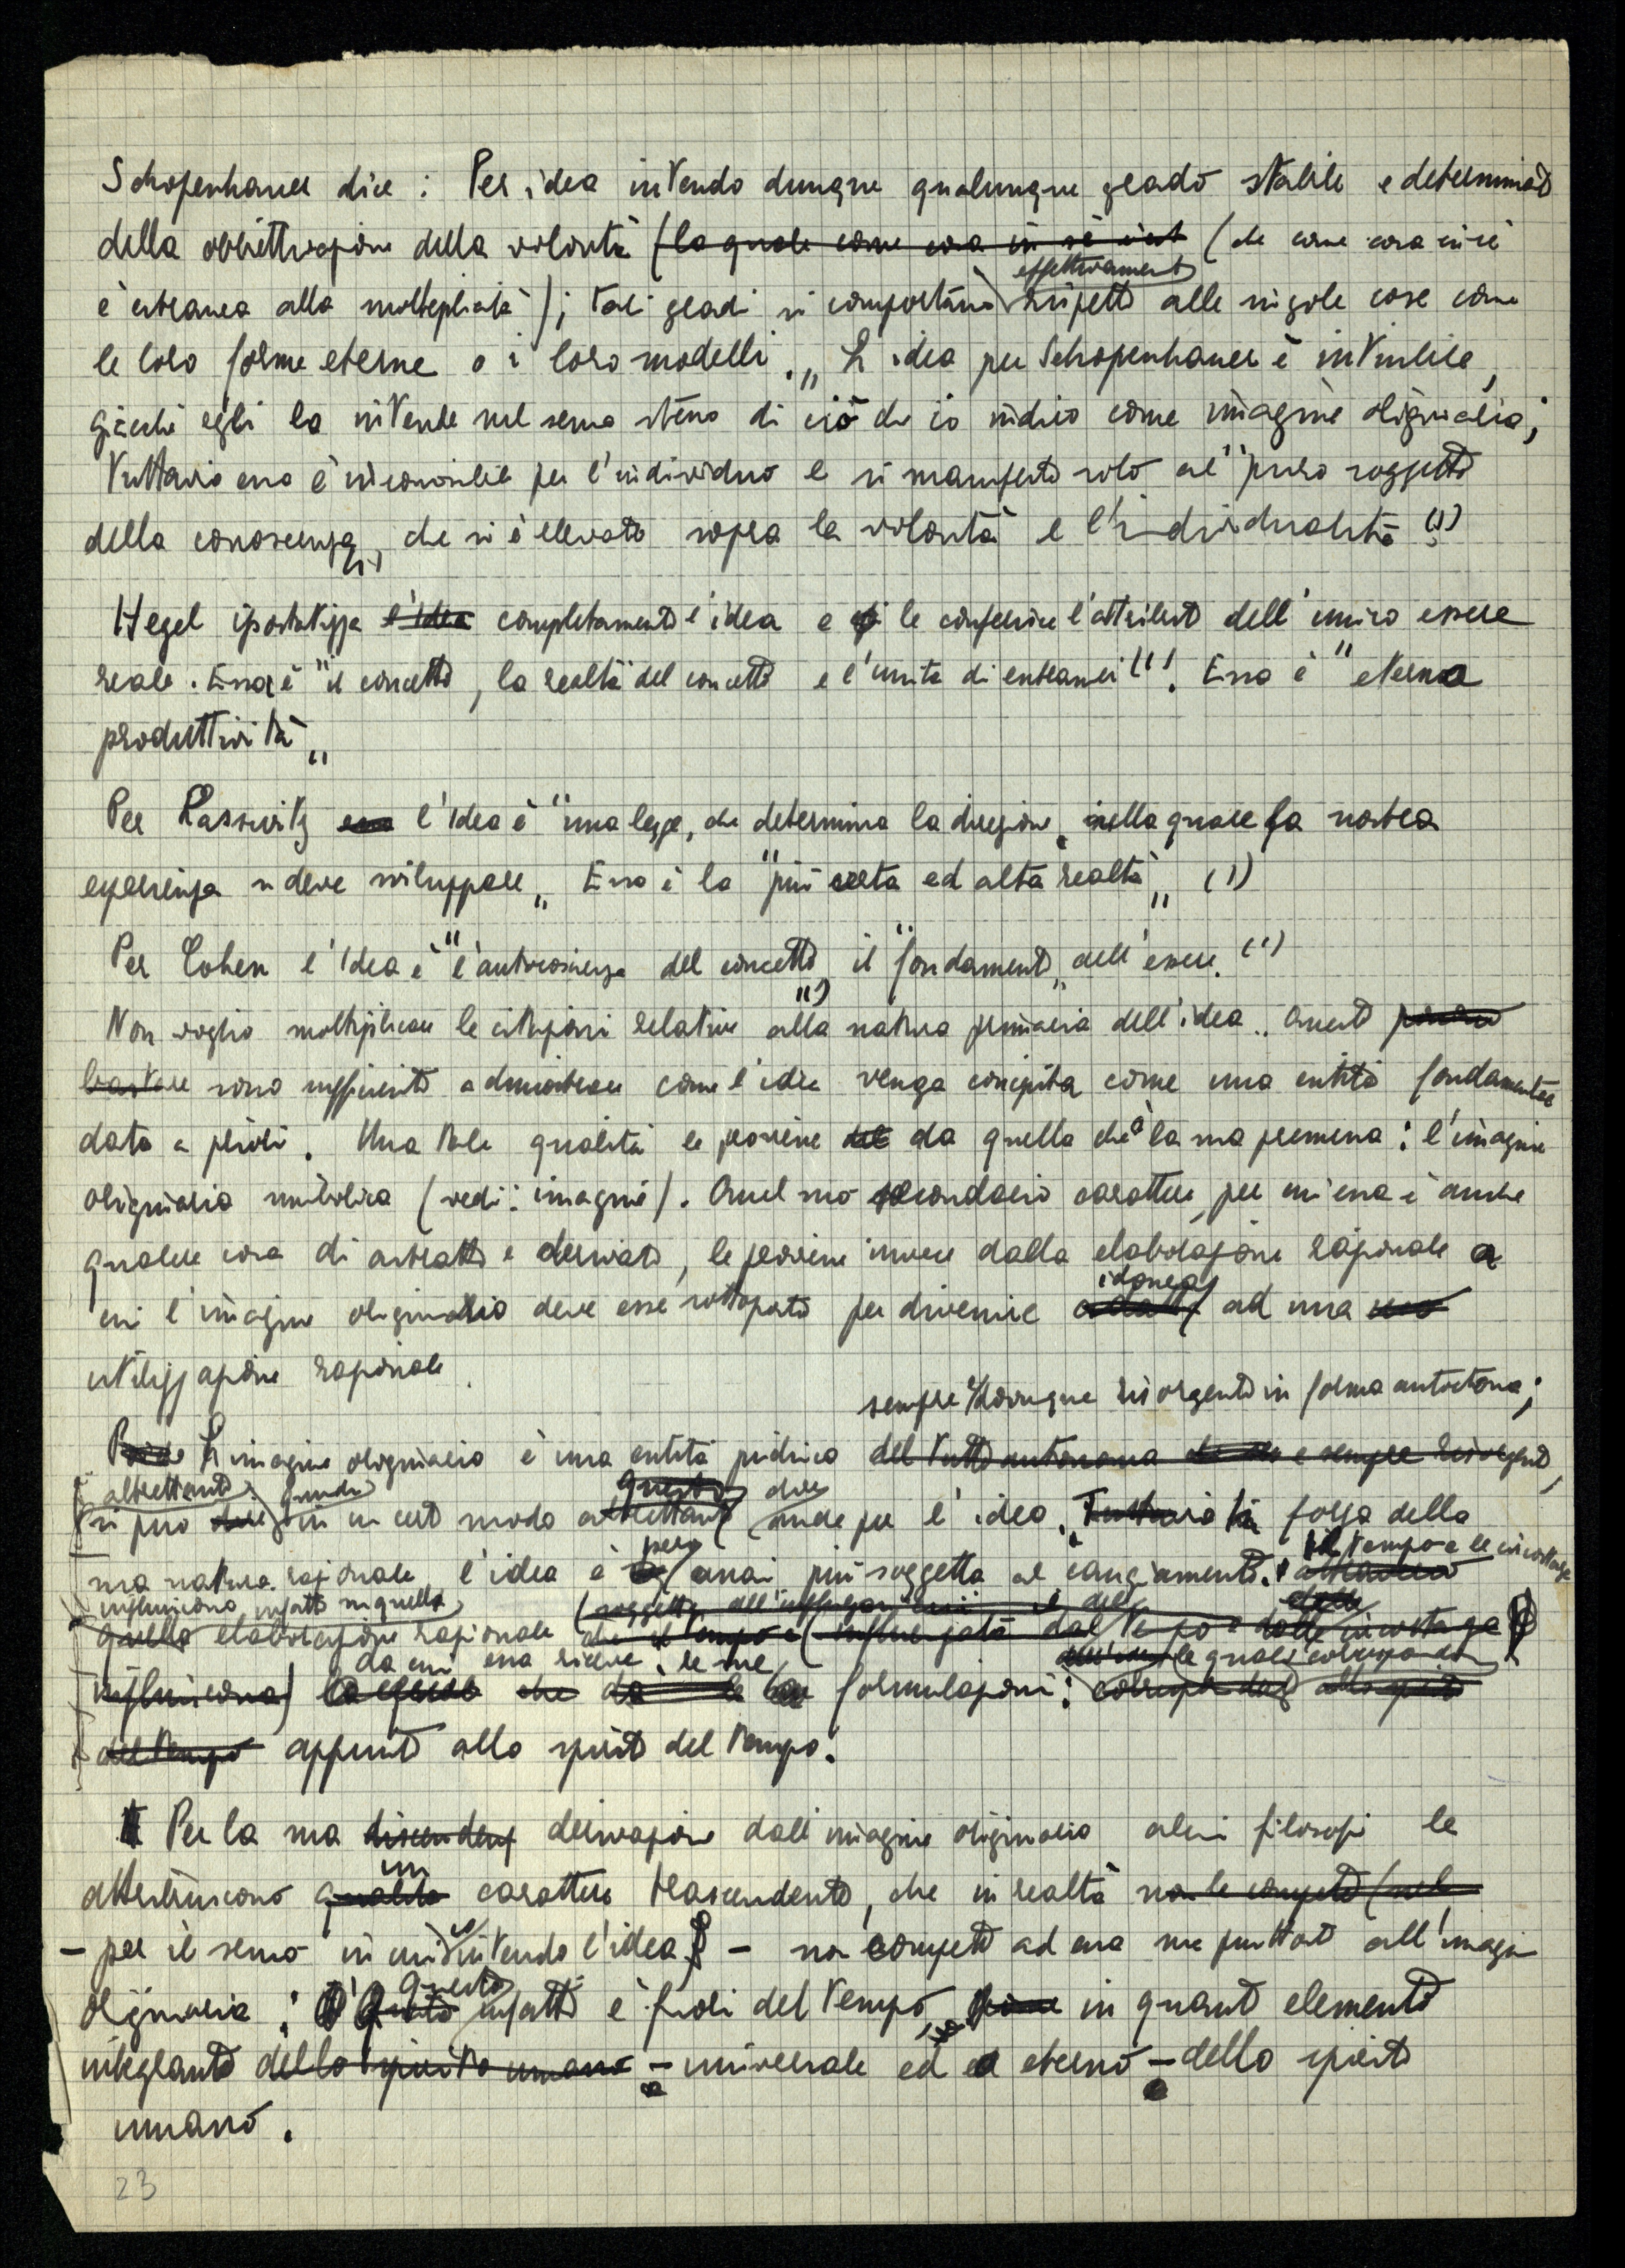 Schopenhauer dice : Per idea intendo dunque qualunque grado stabile e determinato
della obbiettivazione della volontà (la quale come cosa in sè è est (che come cosa in sè
è estranea alla molteplicità) ; tali gradi si comportano effettivamente rispetto alle singole cose come
le loro forme eterne o i loro modelli . „ L'idea per Schopenhauer è intuibile,
giacchè egli la intende nel senso stesso di ciò che io indico come imagine originaria ;
tuttavia essa è inconoscibile per l'individuo e si manifesta solo al "puro soggetto
della conoscenza„ che si è elevato sopra la volontà e l'individualità (1)
Hegel ipostatizza l'idea completamente l'idea e le conferisce l'attributo dell'unico essere
reale . Essa è "il concetto, la realtà del concetto e l'unità di entrambi (1) . Essa è "eterna
produttività„
Per Lasswitz l'idea è "una legge, che determina la direzione, nella quale la nostra
esperienza si deve sviluppare„ Essa è la "più certa ed alta realtà„ (1)
Per Cohen l'idea è "l'autocoscienza del concetto„ il "fondamento„ dell'essere. (1)
Non voglio moltiplicare le citazioni relative alla natura primaria dell'idea . Queste
bastare sono sufficienti a dimostrare come l'idea venga concepita come una entità fondamentale
data a priori . Una tale qualità le proviene del da quella che è la sua premessa : l'imagine
originaria simbolica (vedi : imagine) . Quel suo secondario carattere, per cui essa è anche
qualche cosa di astratto e derivato, le proviene invece dalla elaborazione razionale a
cui l'imagine originaria deve esse sottoposta per divenire adatta idonea ad una uso
utilizzazione razionale .
sempre e dovunque risorgente in forma autoctona ;
L'imagine originaria è una entità psichica del tutto autonoma che e sempre risorgente,
altrettanto quindi questo dire
si può dire in un certo modo altrettanto anche per l'idea . Tuttavia in forza della
però il tempo e le circostanze
sua natura razionale l'idea è assai più soggetta al cangiamento .
influiscono infatti su quella
quella elaborazione razionale che il tempo e influenzata dal tempo e dalle circostanze
da cui essa riceve le sue le quali corrispondono
influiscono) che formulazioni : allo spirito
del tempo appunto allo spirito del tempo .
Per la sua discendenz derivazione dall'imagine originaria alcuni filosofi le
attribuiscono qualità un carattere trascendente, che in realtà non le compete (nel
– per il senso in cui io intendo l'idea – non compete ad essa ma piuttosto all'imagine
originaria : Questa infatti è fuori del tempo, in quanto elemento
integrante dello spirito umano – universale ed eterno – dello spirito
umano .
23